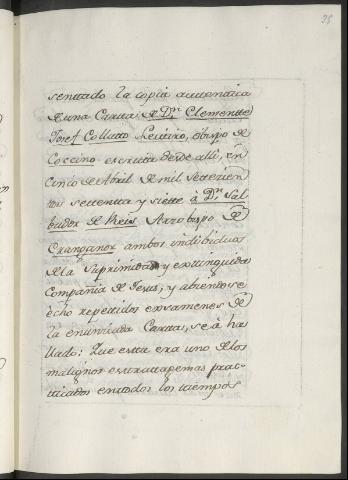 38
sentado la copia autentica
de una Carta, de Dn. Clemente
Josef Collasso Leitiro, obispo de
Coccino escrita desde alli, en
cinco de Abril de mil Setecien
tos settenta y siete à Dn. Sal-
bador de Reis Arzobispo de
Cranganor ambos indibiduos
de la Suprimida y extinguida
Compañia de Jesus; y abiendose
echo repetidos exsamenes de
la enunciada Carta, se à ha
llado: Que esta era uno de los
malignos estratagemas prac-
ticados en todos los tiempos